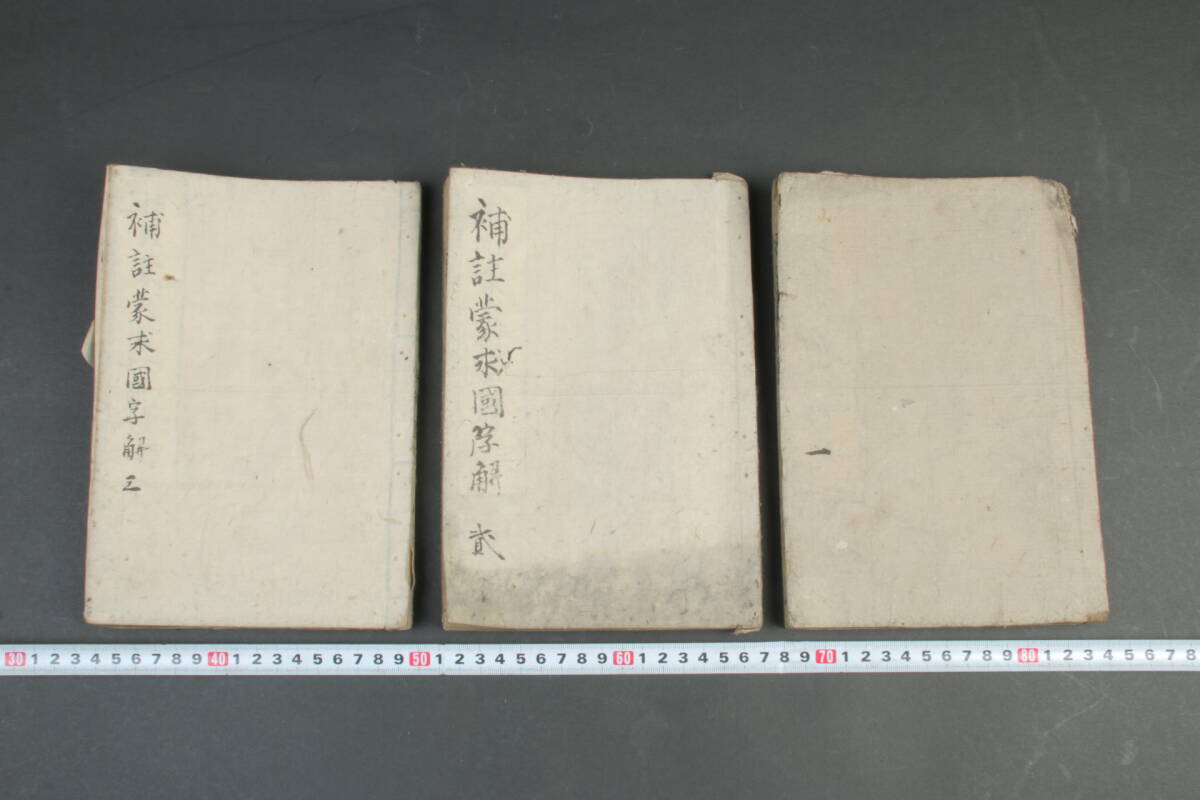 補註蒙求國字解 三
補註蒙求國字解 貳
一
30 1 2 3 4 5 6 7 8 9 40 1 2 3 4 5 6 7 8 9 50 1 2 3 4 5 6 7 8 9 60 1 2 3 4 5 6 7 8 9 70 1 2 3 4 5 6 7 8 9 80 1 2 3 4 5 6 7 8